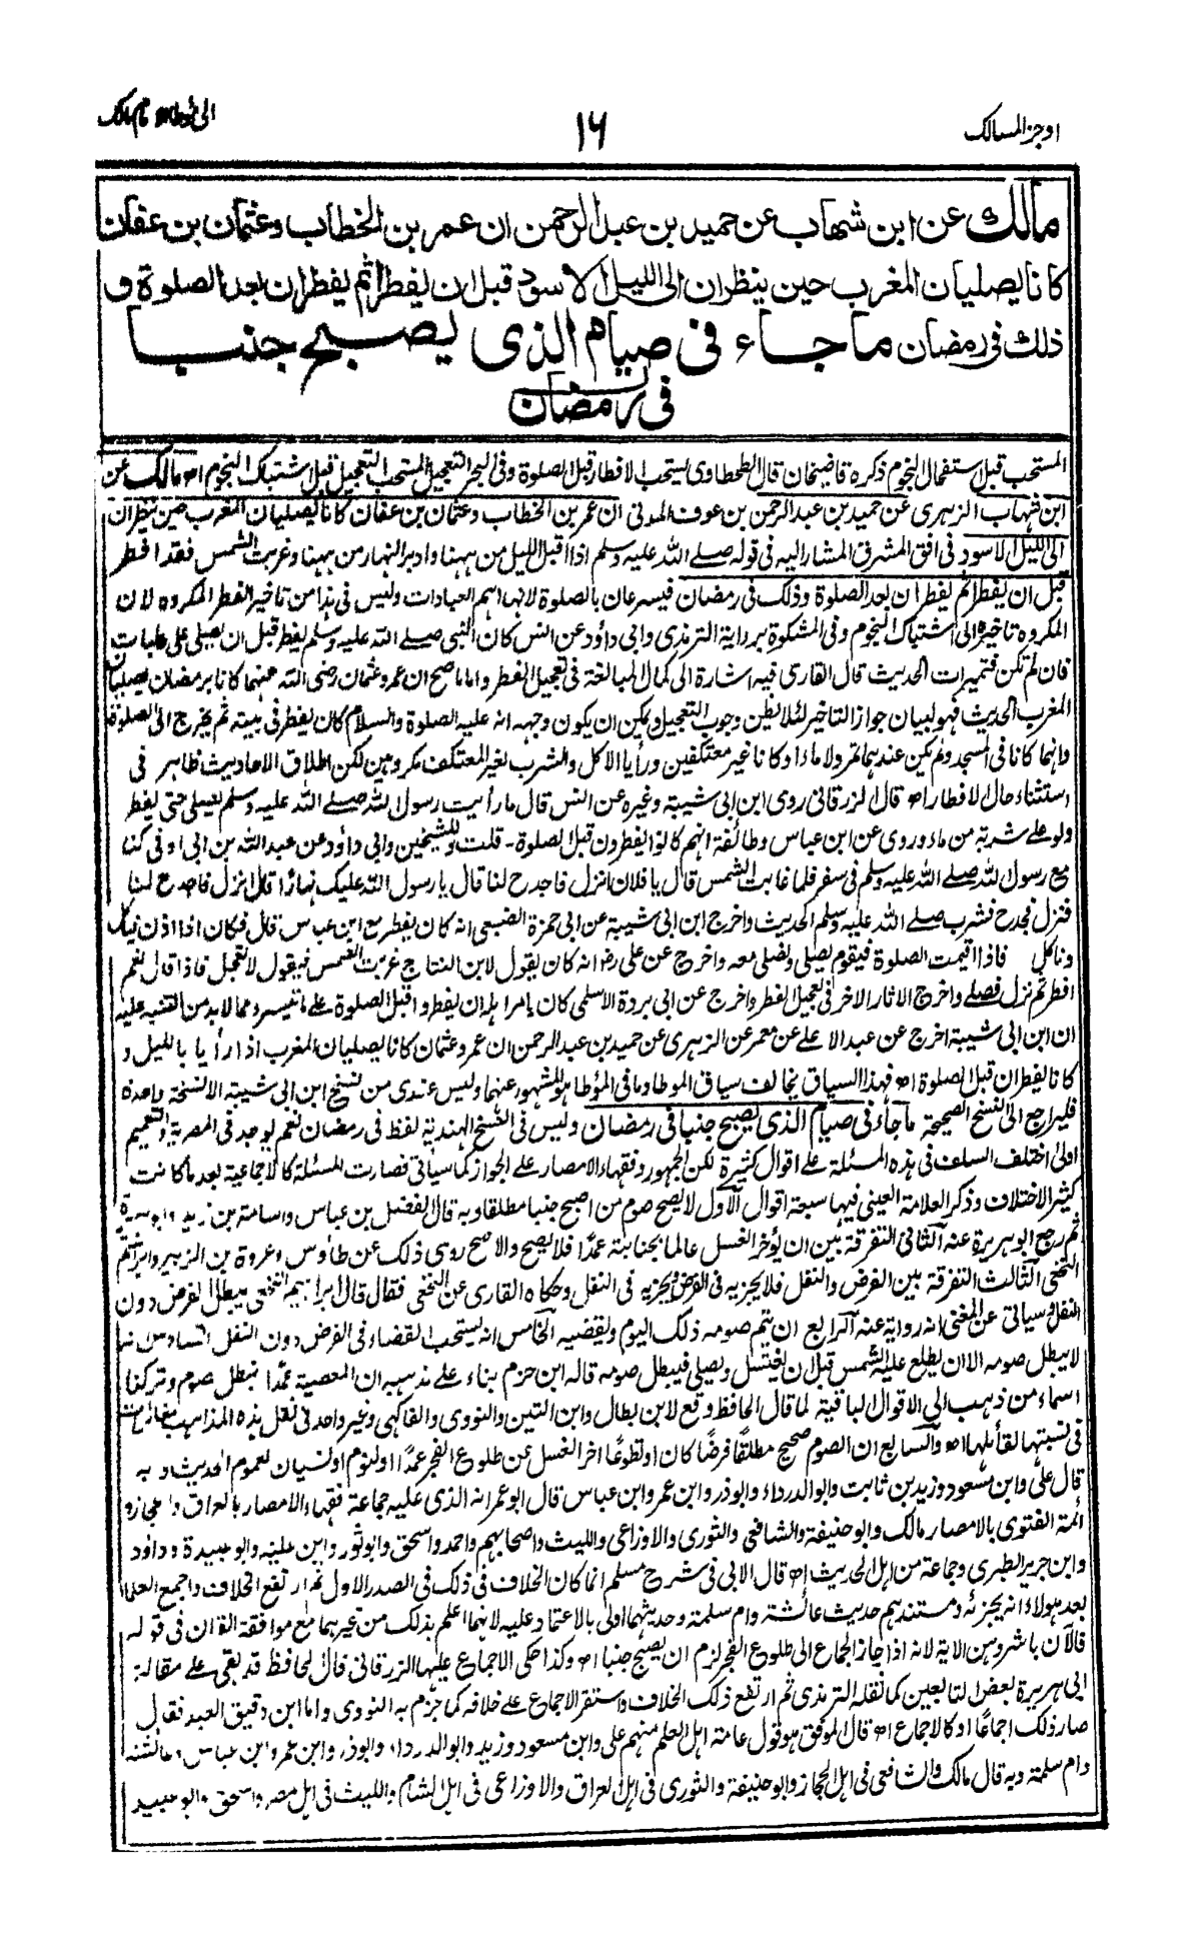 اوجز المسالك
١٦
الى موطا امام مالك
مالك عن ابن شهاب عن حميد بن عبد الرحمن ان عمر بن الخطاب وعثمان بن عفان
كانا يصليان المغرب حين ينظران الى الليل الاسود قبل ان يفطرا ثم يفطران بعد الصلوة و
ذلك فى رمضان ما جاء فى صيام الذى يصبح جنبا
فى رمضان
المستحب قبل استفحال النجوم ذكره قاضيخان قال الطحطاوى يستحب الافطار قبل الصلوة وفى البحر التعجيل المستحب التعجيل قبل اشتباك النجوم اھ مالك عن
ابن شهاب الزهرى عن حميد بن عبد الرحمن بن عوف المدنى ان عمر بن الخطاب وعثمان بن عفان كانا يصليان المغرب حين ينظران
الى الليل الاسود فى افق المشرق المشار اليه فى قوله صلے الله عليه وسلم اذا اقبل الليل من ههنا وادبر النهار من ههنا وغربت الشمس فقد افطر
قبل ان يفطرا ثم يفطران بعد الصلوة وذلك فى رمضان فيسرعان بالصلوة لانها اهم العبادات وليس فى هذا من تاخير الفطر المكروه لان
المكروه تاخيره الى اشتباك النجوم وفى المشكوة برواية الترمذى وابى داؤد عن انس كان النبى صلے الله عليه وسلم يفطر قبل ان يصلى على رطبات
فان لم تكن فتميرات الحديث قال القارى فيه اشارة الى كمال المبالغة فى تعجيل الفطر واما ما صح ان عمر وعثمان رضى الله عنهما كانا برمضان يصليان
المغرب الحديث فهو لبيان جواز التاخير لئلا يظن وجوب التعجيل ويمكن ان يكون وجهه انه عليه الصلوة والسلام كان يفطر فى بيته ثم يخرج الى الصلوة
وانهما كانا فى المسجد ولم يكن عندهما تمر ولا ماء او كانا غير معتكفين ورأيا الاكل والشرب لغير المعتكف مكروهين لكن اطلاق الاحاديث ظاهر فى
استثناء حال الافطار اھ قال الزرقانى روى ابن ابى شيبة وغيره عن انس قال ما رأيت رسول الله صلے الله عليه وسلم يصلى حتى يفطر
ولو على شربة من ماء وروى عن ابن عباس وطائفة انهم كانوا يفطرون قبل الصلوة ـ قلت وللشيخين وابى داؤد عن عبد الله بن ابى اوفى كنا
مع رسول الله صلے الله عليه وسلم فى سفر فلما غابت الشمس قال يا فلان انزل فاجدح لنا قال يا رسول الله عليك نهارًا قال انزل فاجدح لنا
فنزل فجدح فشرب صلے الله عليه وسلم الحديث واخرج ابن ابى شيبة عن ابى حمزة الضبعى انه كان يفطر مع ابن عباس قال فكان اذا اذن نيأكل
ونأكل فاذا اقيمت الصلوة فيقوم يصلى ونصلى معه واخرج عن على رض انه كان يقول لابن النباج غربت الشمس فيقول لا تعجل فاذا قال نعم
افطر ثم نزل فصلے واخرج الاثار الاخر فى تعجيل الفطر واخرج عن ابى بردة الاسلمى كان يامر اهله ان يفطروا قبل الصلوة على ما تيسر ومما لا بد من التنبه عليه
ان ابن ابى شيبة اخرج عن عبد الاعلے عن معمر عن الزهرى عن حميد بن عبد الرحمن ان عمر وعثمان كانا يصليان المغرب اذا رأيا بالليل و
كانا يفطران قبل الصلوة اھ فهذا السياق يخالف سياق الموطا وما فى المؤطا هو المشهور عنهما وليس عندى من نسخ ابن ابى شيبة الا نسخة واحدة
فليراجع الى النسخ الصحيحة ما جاء فى صيام الذى يصبح جنبا فى رمضان وليس فى النسخ الهندية لفظ فى رمضان نعم يوجد فى المصرية والتعميم
اولى اختلف السلف فى هذه المسئلة على اقوال كثيرة لكن الجمهور وفقهاء الامصار على الجواز كما سيأتى فصارت المسئلة كالاجماعية بعد ما كانت
كثير الاختلاف وذكر العلامة العينى فيها سبعة اقوال الاول لا يصح صوم من اصبح جنبا مطلقا وبه قال الفضل بن عباس واسامة بن زيد وابو هريرة
ثم رجع ابو هريرة عنه الثانى التفرقة بين ان يؤخر الغسل عالما بجنابته عمدًا فلا يصح والا صح روى ذلك عن طاؤس وعروة بن الزبير وابراهيم
النخعى الثالث التفرقة بين الفرض والنفل فلا يجزيه فى الفرض ويجزيه فى النفل وحكاه القارى عن النخعى فقال قال ابراهيم النخعى يبطل الفرض دون
النفل وسياتى عن المغنى انه رواية عنه الرابع ان يتم صومه ذلك اليوم ويقضيه الخامس انه يستحب القضاء فى الفرض دون النفل السادس انه
لا يبطل صومه الا ان يطلع عليه الشمس قبل ان يغتسل ويصلى فيبطل صومه قاله ابن حزم بناء على مذهبه ان المعصية عمدًا تبطل صوم وتركنا
اسماء من ذهب الى الاقوال الباقية لما قال الحافظ وقع لابن بطال وابن التين والنووى والفاكهى وغير واحد فى نقل هذه المذاهب مغائرات
فى نسبتها لقائلها اھ والسابع ان الصوم صحيح مطلقًا فرضًا كان او تطوعًا اخر الغسل عن طلوع الفجر عمدًا او لنوم او نسيان لعموم الحديث وبه
قال على وابن مسعود وزيد بن ثابت وابو الدرداء وابو ذر وابن عمر وابن عباس قال ابو عمر انه الذى عليه جماعة فقهاء الامصار بالعراق والحجاز و
ائمة الفتوى بالامصار مالك وابو حنيفة والشافعى والثورى والاوزاعى والليث واصحابهم واحمد واسحق وابو ثور وابن علية وابو عبيدة وداؤد
وابن جرير الطبرى وجماعة من اهل الحديث اھ قال الابى فى شرح مسلم انما كان الخلاف فى ذلك فى الصدر الاول ثم ارتفع الخلاف واجمع العلماء
بعد هولاء انه يجزئه ومستندهم حديث عائشة وام سلمة وحديثهما اولى بالاعتماد عليه لانهما اعلم بذلك من غيرهما مع موافقة القرآن فى قوله
فالآن باشروهن الاية لانه اذا جاز الجماع الى طلوع الفجر لزم ان يصبح جنبا اھ وكذا حكى الاجماع عليها الزرقانى قال الحافظ قد بقى على مقالة
ابى هريرة بعض التابعين كما نقله الترمذى ثم ارتفع ذلك الخلاف واستقر الاجماع على خلافه كما جزم به النووى واما ابن دقيق العيد فقال
صار ذلك اجماعًا او كالاجماع اھ قال الموفق هو قول عامة اهل العلم منهم على وابن مسعود وزيد وابو الدرداء وابو ذر وابن عمر وابن عباس وعائشة
وام سلمة وبه قال مالك والشافعى فى اهل الحجاز وابو حنيفة والثورى فى اهل العراق والاوزاعى فى اهل الشام والليث فى اهل مصر واسحق وابو عبيد